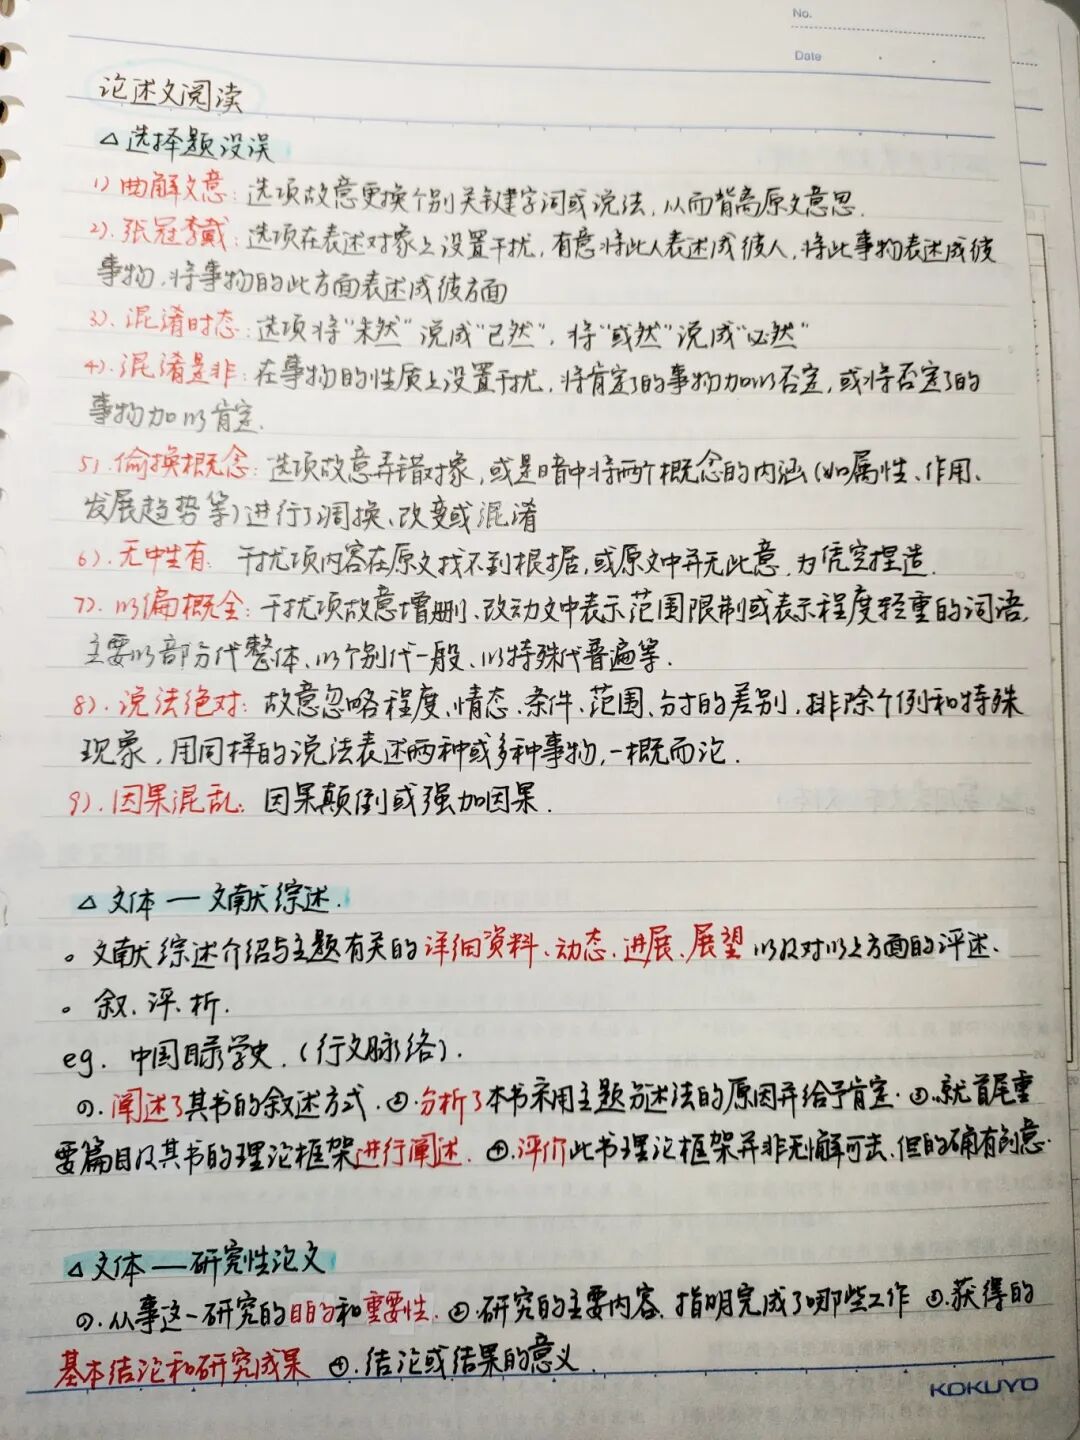 No.
Date
论述文阅读
△选择题设误
1).曲解文意:选项故意更换个别关键字词或说法,从而背离原文意思.
2).张冠李戴:选项在表述对象上设置干扰,有意将此人表述成彼人,将此事物表述成彼
事物,将事物的此方面表述成彼方面
3).混淆时态:选项将“未然”说成“已然”,将“或然”说成“必然”
4).混淆是非:在事物的性质上设置干扰,将肯定了的事物加以否定,或将否定了的
事物加以肯定.
5).偷换概念:选项故意弄错对象,或是暗中将两个概念的内涵(如属性、作用、
发展趋势等)进行了调换、改变或混淆
6).无中生有:干扰项内容在原文找不到根据,或原文中并无此意,为凭空捏造.
7).以偏概全:干扰项故意增删、改动文中表示范围限制或表示程度轻重的词语,
主要以部分代整体、以个别代一般、以特殊代普遍等.
8).说法绝对:故意忽略程度、情态、条件、范围、分寸的差别,排除个例和特殊
现象,用同样的说法表述两种或多种事物,一概而论.
9).因果混乱:因果颠倒或强加因果.
△文体一文献综述.
。文献综述介绍与主题有关的详细资料、动态、进展、展望以及对以上方面的评述.
。叙、评、析.
eg.中国目录学史.(行文脉络).
①.阐述了其书的叙述方式.②.分析了本书采用主题分述法的原因并给予肯定.③.就首尾重
要篇目及其书的理论框架进行阐述.④.评价此书理论框架并非无懈可击,但的确有创意.
△文体—研究性论文
①.从事这一研究的目的和重要性.②.研究的主要内容,指明完成了哪些工作③.获得的
基本结论和研究成果④.结论或结果的意义.
KOKUYO